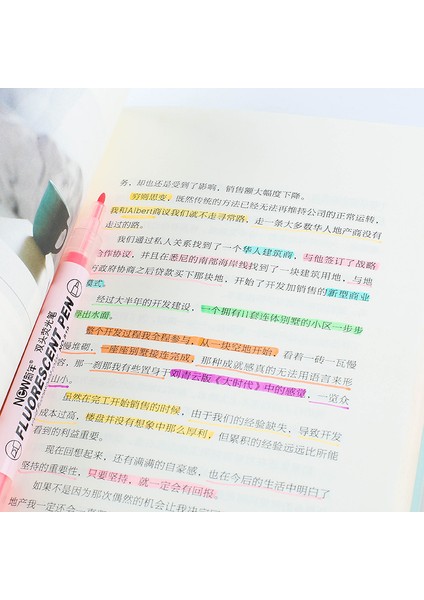 务，却也还是受到了影响，销售额大幅度下降。
穷则思变，既然传统的方法已经无法再维持公司的正常运转，
我和Albert商议我们就不走寻常路，走一条大多数华人地产商没有
走过的路。
我们通过私人关系找到了一个华人建筑商，与他签订了战略
合作协议，并且在悉尼的南部海岸线找到了一块建筑用地，与地
行政府协商之后贷款买下那块地，开始了开发加销售的新型商业
模式。
经过大半年的开发建设，一个拥有11套连体别墅的小区一步步
浮出水面。
整个开发过程我全程参与，从一块空地开始，看着一砖一瓦慢
慢堆砌，一座座别墅接连完成，那种成就感真的无法用语言来形
容，那一刻那我有些置身于刘青云版《大时代》中的感觉，一览众
山小。
虽然在完工开始销售的时候，由于我们的经验缺失，导致开发
成本过高，楼盘并没有想象中那么厚利，但累积的经验远远比所能
看到的利益重要。
现在回想起来，还有满满的自豪感，也在今后的生活中明白了
坚持的重要性，只要坚持，就一定会有回报。
如果不是因为那次偶然的机会让我决定
地产我一定还会一直
NOW前年
双头荧光笔
FLUORESCENT PEN